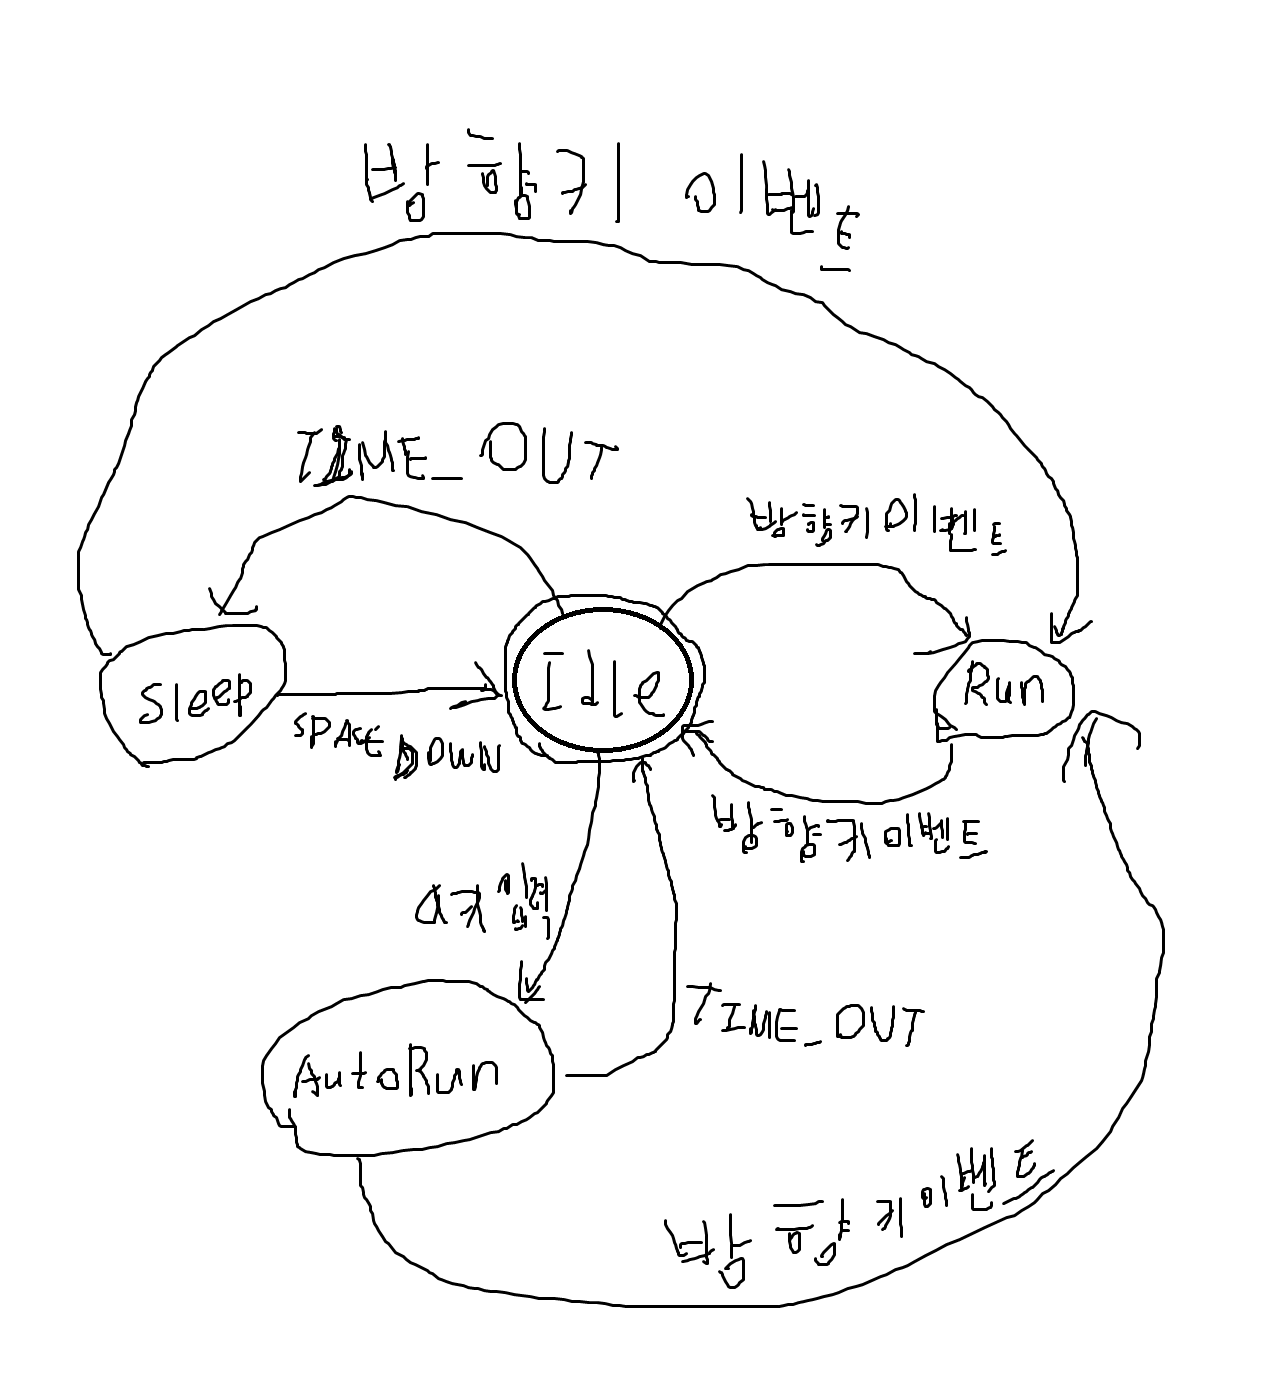 방향키 이벤트
TIME_OUT
방향키이벤트
Sleep
Idle
Run
SPACE DOWN
방향키이벤트
a키 입력
TIME_OUT
AutoRun
방향키이벤트